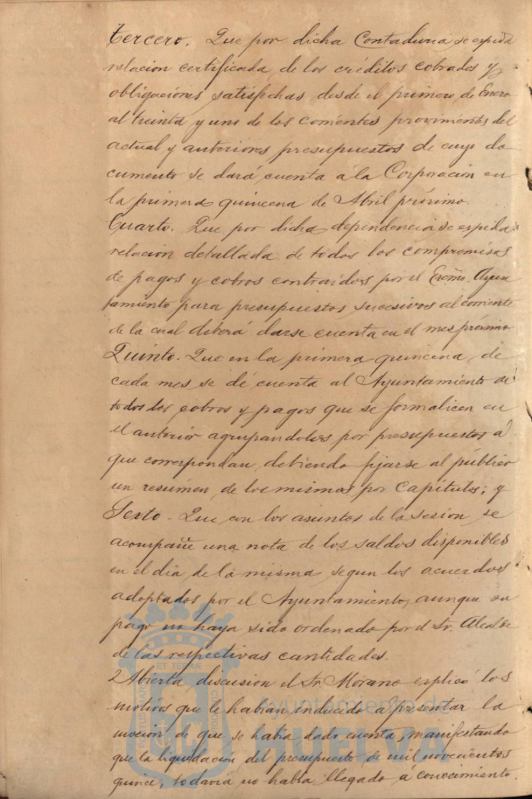 tercero. Que por dicha Contaduria se expida
relacion certificada de los créditos cobrados y
obligaciones satisfechas desde el primero de Enero
al treinta y uno de los corrientes provinientes del
actual y anteriores presupuestos de cuyo do
cumento se dará cuenta á la Corporacion en
la primera quincena de Abril próximo.
Cuarto. Que por dicha dependencia se expida
relacion detallada de todos los compromisos
de pagos y cobros contraidos por el Excmo. Ayun
tamiento para presupuestos sucesivos al corriente
de la cual deberá darse cuenta en el mes próximo
Quinto. Que en la primera quincena de
cada mes se dé cuenta al Ayuntamiento de
todos los cobros y pagos que se formalicen en
el anterior agrupandolos por presupuestos á
que correspondan, debiendo fijarse al publico
un resúmen de los mismos por Capitulos; y
Sexto. Que con los asuntos de la sesion se
acompañe una nota de los saldos disponibles
en el dia de la misma segun los acuerdos
adoptados por el Ayuntamiento, aunque su
pago no haya sido ordenado por el Sr. Alcalde
de las respectivas cantidades.
Abierta discusion el Sr. Morano explicó los
motivos que le habian inducido a presentar la
mocion de que se habia dado cuenta, manifestando
que la liquidacion del presupuesto de mil novecientos
quince, todavia no habia llegado a conocimiento.
Ayuntamiento de
HUELVA